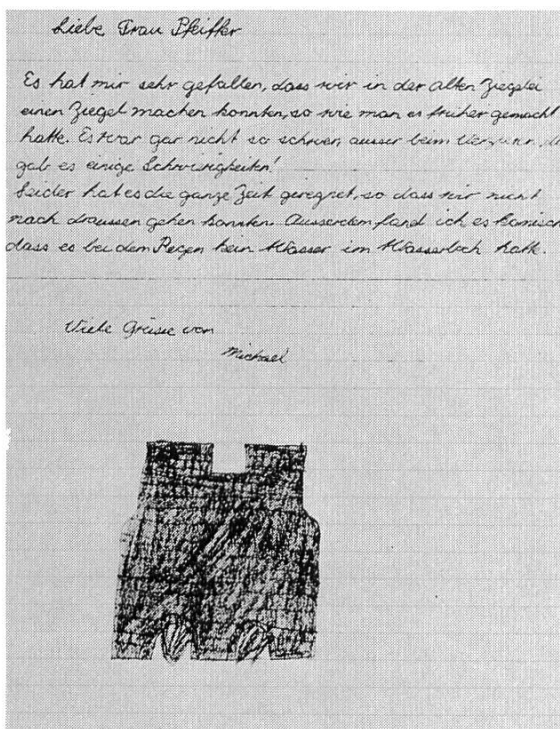 Liebe Frau Pfeiffer
Es hat mir sehr gefallen, dass wir in der alten Ziegelei
einen Ziegel machen konnten, so wie man es früher gemacht
hatte. Es war gar nicht so schwer, ausser beim
gab es einige Schwierigkeiten!
Leider hat es die ganze Zeit geregnet, so dass wir nicht
nach draussen gehen konnten. Ausserdem fand ich es komisch
dass es bei dem Regen kein Wasser im Wasserloch hatte.
Viele Grüsse von
Michael